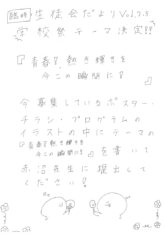 臨時 生徒会だよりVol.7.5
学校祭テーマ決定!!
『青春を熱き輝きを
今この瞬間に!
』
今募集しているポスター・
チラシ・プログラムの
イラストの中にテーマの
『青春を熱き輝きを
今この瞬間に!』を書いて
赤沼先生に提出して
ください!